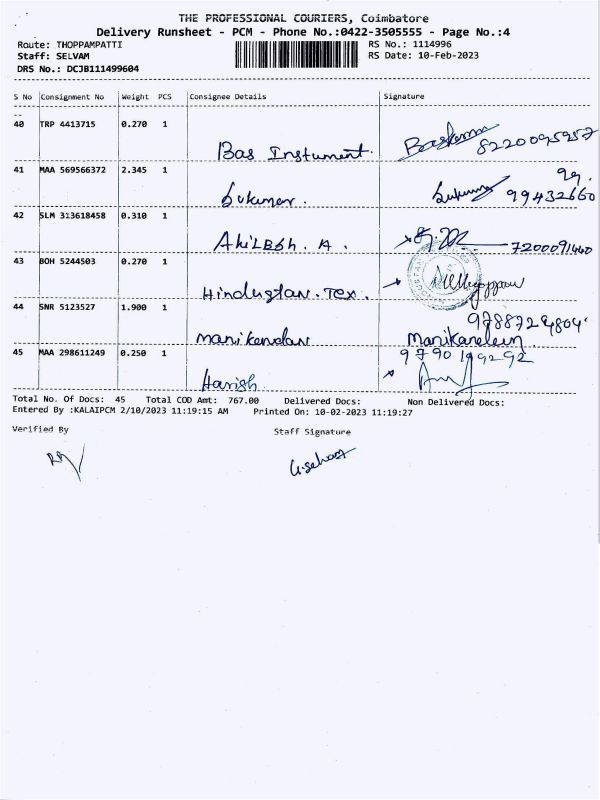 THE PROFESSIONAL COURIERS, Coimbatore
Delivery Runsheet - PCM - Phone No.:0422-3505555 - Page No.:4
Route: THOPPAMPATTI RS No.: 1114996
Staff: SELVAM RS Date: 10-Feb-2023
DRS No.: DCJB111499604
S No Consignment No Weight PCS Consignee Details Signature
--
40 TRP 4413715 0.270 1
Bas Instument. Baskaran 8220095957
41 MAA 569566372 2.345 1
Sukumar. Sukumar 99432660
42 SLM 313618458 0.310 1
AkiLESh. A. 7200091440
43 BOH 5244503 0.270 1
Hindustan. Tex.
44 SNR 5123527 1.900 1
9788724804
manikandan Manikandan
45 MAA 298611249 0.250 1 9790199292
Harish
Total No. Of Docs: 45 Total COD Amt: 767.00 Delivered Docs: Non Delivered Docs:
Entered By :KALAIPCM 2/10/2023 11:19:15 AM Printed On: 10-02-2023 11:19:27
Verified By Staff Signature
G.Selvam